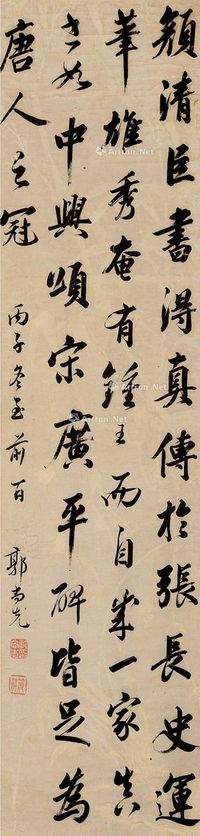 顏清臣書得真傳於張長史運
筆雄秀奄有鍾王而自成一家其
書如中興頌宋廣平碑皆足為
唐人之冠
丙子冬至前一日 郭尚先
Artron.Net